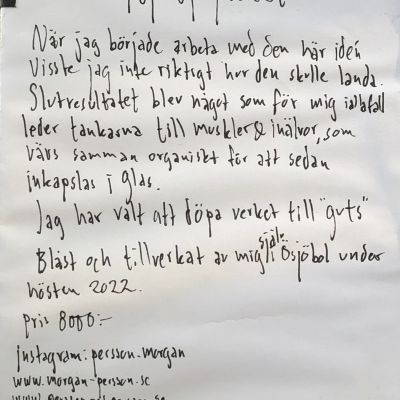 När jag började arbeta med den här iden
Visste jag inte riktigt hur den skulle landa.
Slutresultatet blev något som för mig iallafall
leder tankarna till muskler & inälvor, som
växs samman organiskt för att sedan
inkapslas i glas.
Jag har valt att döpa verket till "guts"
Blåst och tillverkat av mig själv i Ösjöbol under
hösten 2022.
Pris 8000:-
instagram: persson.morgan
www.morgan-persson.se